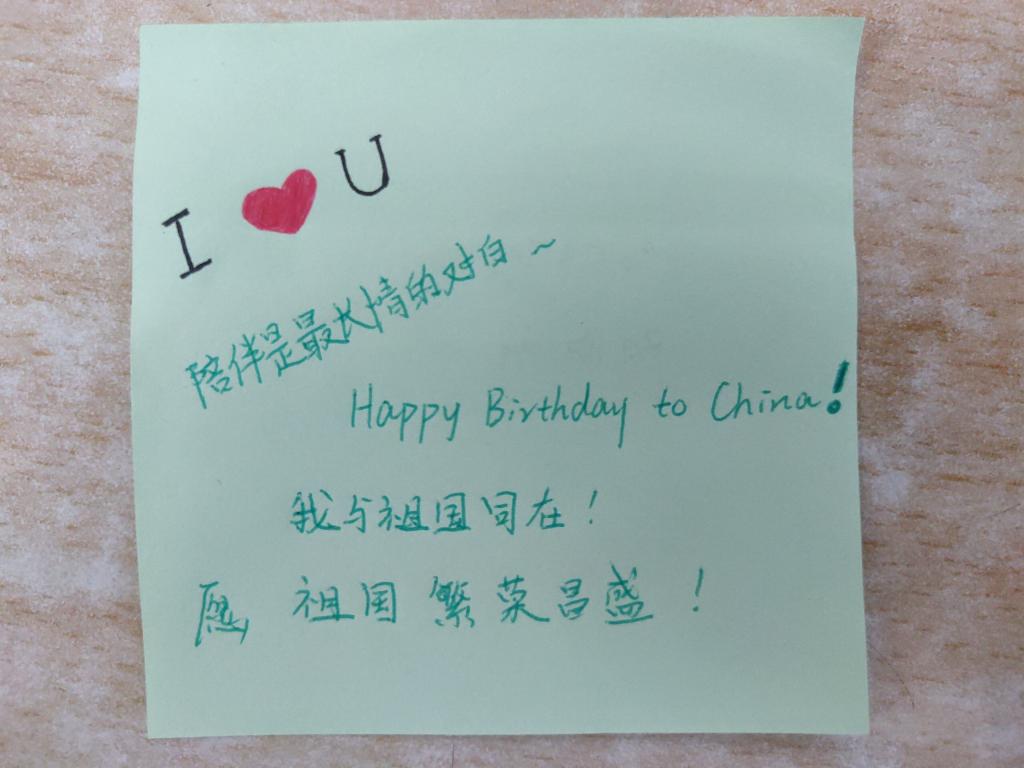 I ❤ U
陪伴是最长情的对白~
Happy Birthday to China!
我与祖国同在!
愿 祖国 繁荣昌盛!